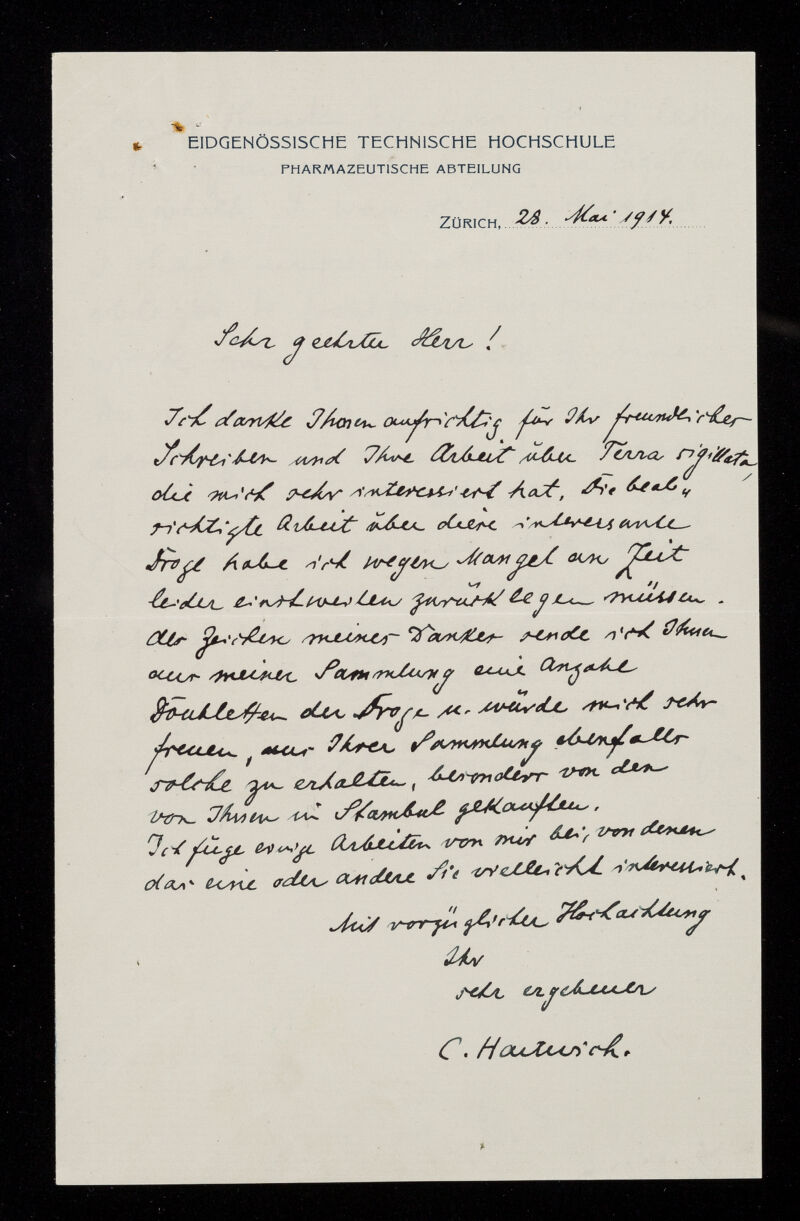 EIDGENÖSSISCHE TECHNISCHE HOCHSCHULE
PHARMAZEUTISCHE ABTEILUNG
ZÜRICH, 28. Mai 1914.
Sehr geehrter Herr!
Ich danke Ihnen aufrichtig für Ihr freundliches
Schreiben und Ihre Arbeit über Terra sigillata,
die mich sehr interessiert hat. Die beab„
sichtigte Arbeit über diese interessante
Droge habe ich wegen Mangel an Zeit
leider einstweilen zurücklegen müssen.
Als Zeichen meines Dankes sende ich Ihnen
aus meiner Sammlung eine Anzahl
Doubletten der Droge u. würde mich sehr
freuen, aus Ihrer Sammlung ebenfalls
solche zu erhalten, besonders von den
von Ihnen in Stambul gekauften.
Ich füge einige Arbeiten von mir bei, von denen
das eine oder andere Sie vielleicht interessiert.
Mit vorzüglicher Hochachtung
Ihr
sehr ergebener
C. Hartwich.